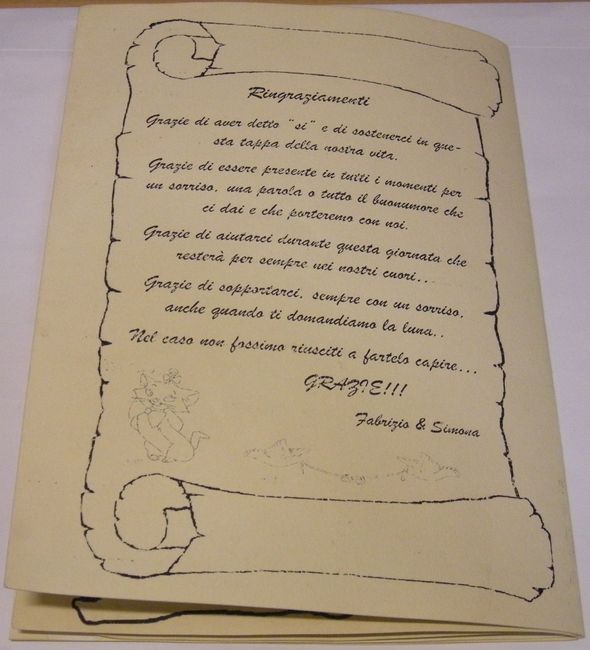 Ringraziamenti
Grazie di aver detto "si" e di sostenerci in que-
sta tappa della nostra vita.
Grazie di essere presente in tutti i momenti per
un sorriso, una parola o tutto il buonumore che
ci dai e che porteremo con noi.
Grazie di aiutarci durante questa giornata che
resterà per sempre nei nostri cuori...
Grazie di sopportarci, sempre con un sorriso,
anche quando ti domandiamo la luna..
Nel caso non fossimo riusciti a fartelo capire...
GRAZIE!!!
Fabrizio & Simona